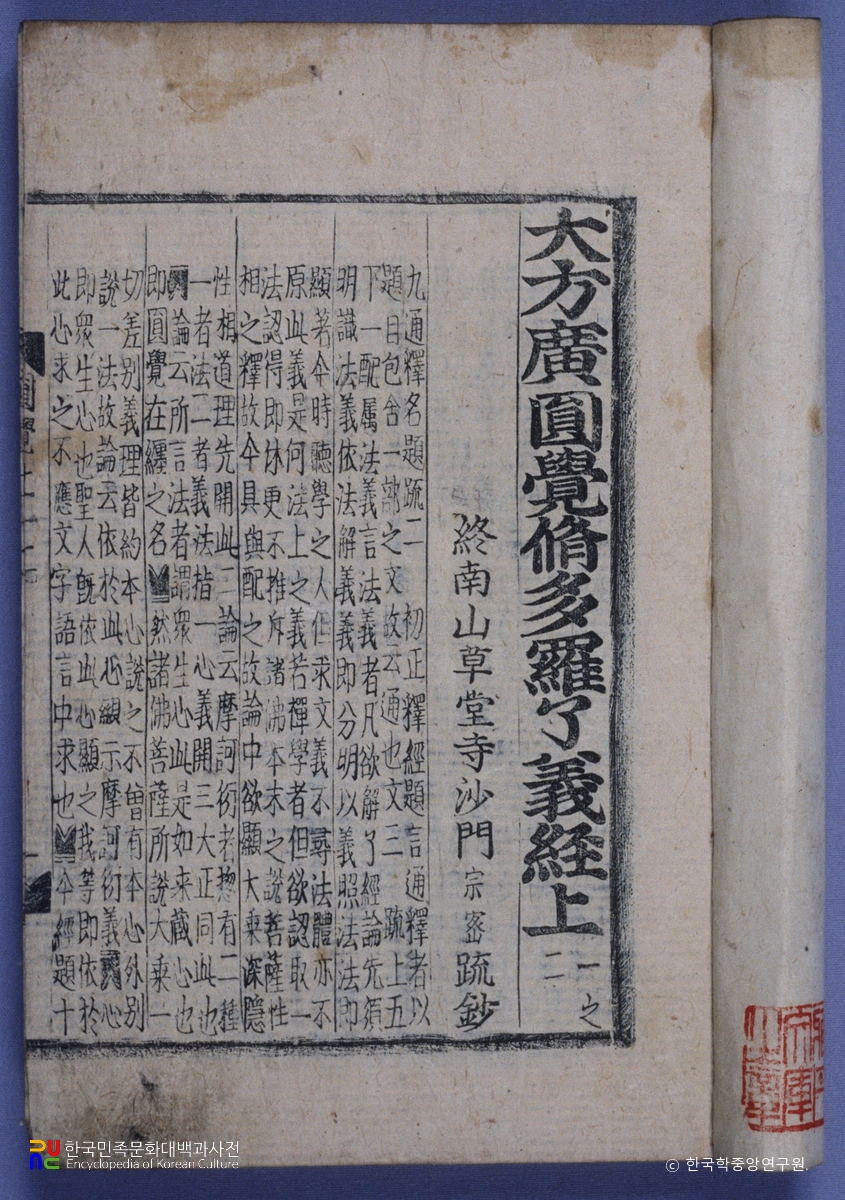 大方廣圎覺脩多羅了義経上 一之二
終南山草堂寺沙門 宗密 疏鈔
九通釋名題疏二 初正釋經題言通釋者以
題目包含一部之文故云通也文三 疏上五
下一配属法義言法義者凡欲解了經論先須
明識法義依法解義義即分明以義照法法即
顯著今時聽學之人但求文義不尋法體亦不
原此義是何法上之義若禪學者但欲認取一
法認得即休更不推斥諸佛本末之說菩薩性
相之釋故今具與配之故論中欲顯大乘深隱
性相道理先開此二論云摩訶衍者揔有二種
一者法二者義法指一心義開三大正同此也
論云所言法者謂衆生心此是如来藏心也
即圓覺在纏之名 然諸佛菩薩所說大乘一
切差別義理皆約本心說之不曾有本心外別
說一法故論云依於此心顯示摩訶衍義 心
即衆生心也聖人旣依此心顯之我等即依於
此心求之不應文字語言中求也 今經題十
圓覺
한국민족문화대백과사전
Encyclopedia of Korean Culture
© 한국학중앙연구원.